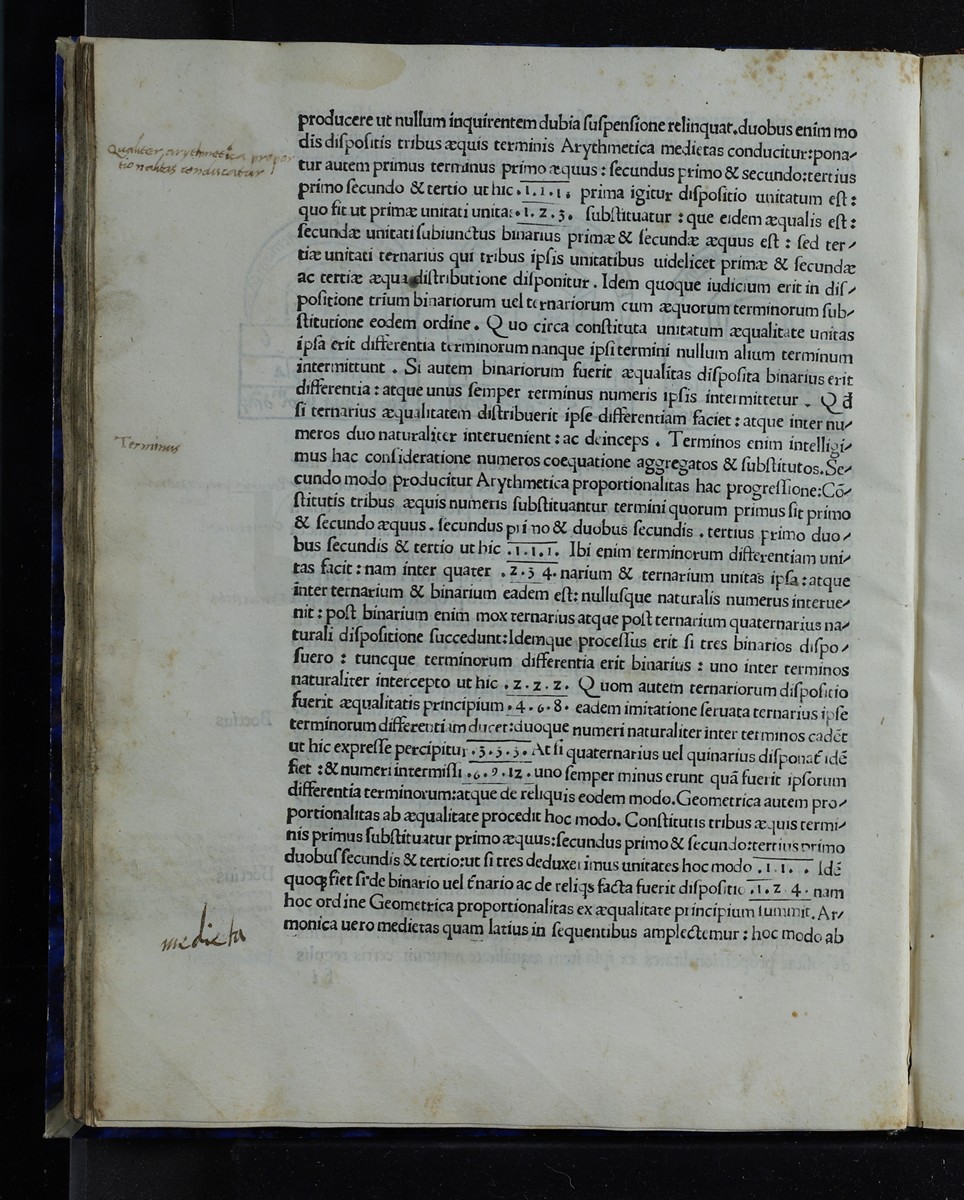 producere ut nullum inquirentem dubia suspensione relinquat. duobus enim mo
dis dispositis tribus æquis terminis Arythmetica medietas conducitur: pona-
tur autem primus terminus primo æquus: secundus primo & secundo: tertius
primo secundo & tertio ut hic .1.1.1. prima igitur dispositio unitatum est:
quo fit ut primæ unitati unitas .1.2.3. substituatur: que eidem æqualis est:
secundæ unitati subiunctus binarius primæ & secundæ æquus est: sed ter-
tiæ unitati ternarius qui tribus ipsis unitatibus uidelicet primæ & secundæ
ac tertiæ æqua distributione disponitur. Idem quoque iudicium erit in dis-
positione trium binariorum uel ternariorum cum æquorum terminorum sub-
stitutione eodem ordine. Quo circa constituta unitatum æqualitate unitas
ipsa erit differentia terminorum nanque ipsi termini nullum alium terminum
intermittunt. Si autem binariorum fuerit æqualitas disposita binarius erit
differentia: atque unus semper terminus numeris ipsis intermittetur. Qd̄
si ternarius æqualitatem distribuerit ipse differentiam faciet: atque inter nu-
meros duo naturaliter interuenient: ac deinceps. Terminos enim intelligi-
mus hac consideratione numeros coequatione aggregatos & substitutos. Se-
cundo modo producitur Arythmetica proportionalitas hac progressione: Cō-
stitutis tribus æquis numeris substituantur termini quorum primus sit primo
& secundo æquus. secundus primo & duobus secundis. tertius primo duo-
bus secundis & tertio ut hic .1.1.1. Ibi enim terminorum differentiam uni-
tas facit: nam inter quater .2.3 4. narium & ternarium unitas ipsa: atque
inter ternarium & binarium eadem est: nullusque naturalis numerus interue-
nit: post binarium enim mox ternarius atque post ternarium quaternarius na-
turali dispositione succedunt: Idemque processus erit si tres binarios dispo-
suero: tuncque terminorum differentia erit binarius: uno inter terminos
naturaliter intercepto ut hic .2.2.2. Quom autem ternariorum dispositio
fuerit æqualitatis principium .4.6.8. eadem imitatione seruata ternarius ipse
terminorum differentiam ducet: duoque numeri naturaliter inter terminos cadēt
ut hic expresse percipitur .3.3.3. At si quaternarius uel quinarius disponat̄ idē
fiet: & numeri intermissi .6.9.12. uno semper minus erunt quā fuerit ipsorum
differentia terminorum: atque de reliquis eodem modo. Geometrica autem pro-
portionalitas ab æqualitate procedit hoc modo. Constitutis tribus æquis termi-
nis primus substituatur primo æquus: secundus primo & secundo: tertius primo
duobus secundis & tertio: ut si tres deduxerimus unitates hoc modo .1.1. . Idē
quoqꝫ fiet si de binario uel t̄nario ac de reliqs facta fuerit dispositio .1.2 4. nam
hoc ordine Geometrica proportionalitas ex æqualitate principium summit. Ar-
monica uero medietas quam latius in sequentibus amplectemur: hoc modo ab
Qualiter arythmetica propor
tionalitas conducatur
Terminus
medieta